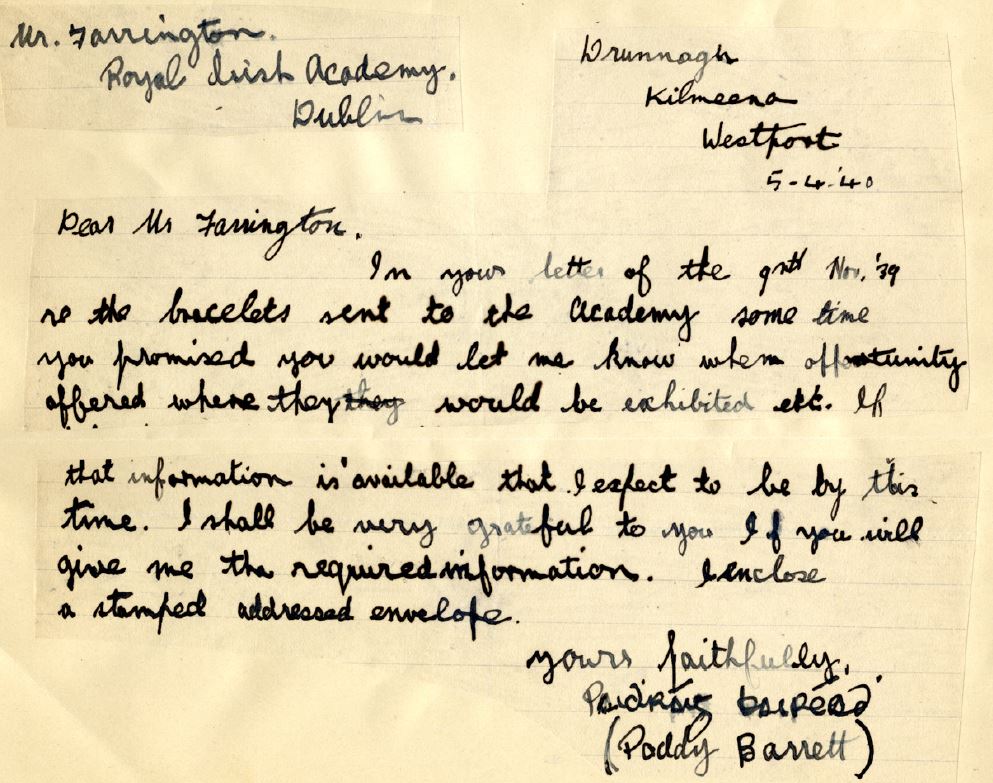 Mr. Farrington.
Royal Irish Academy.
Dublin
Drunnagh
Kilmeena
Westport
5-4-'40
Dear Mr Farrington.
In your letter of the 9nth Nov. '39
re the bracelets sent to the Academy some time
you promised you would let me know when opportunity
offered where they they would be exhibited etc. If
that information is available that I expect to be by this
time. I shall be very grateful to you If you will
give me the required information. I enclose
a stamped addressed envelope.
yours faithfully,
Pádraig
(Paddy Barrett)